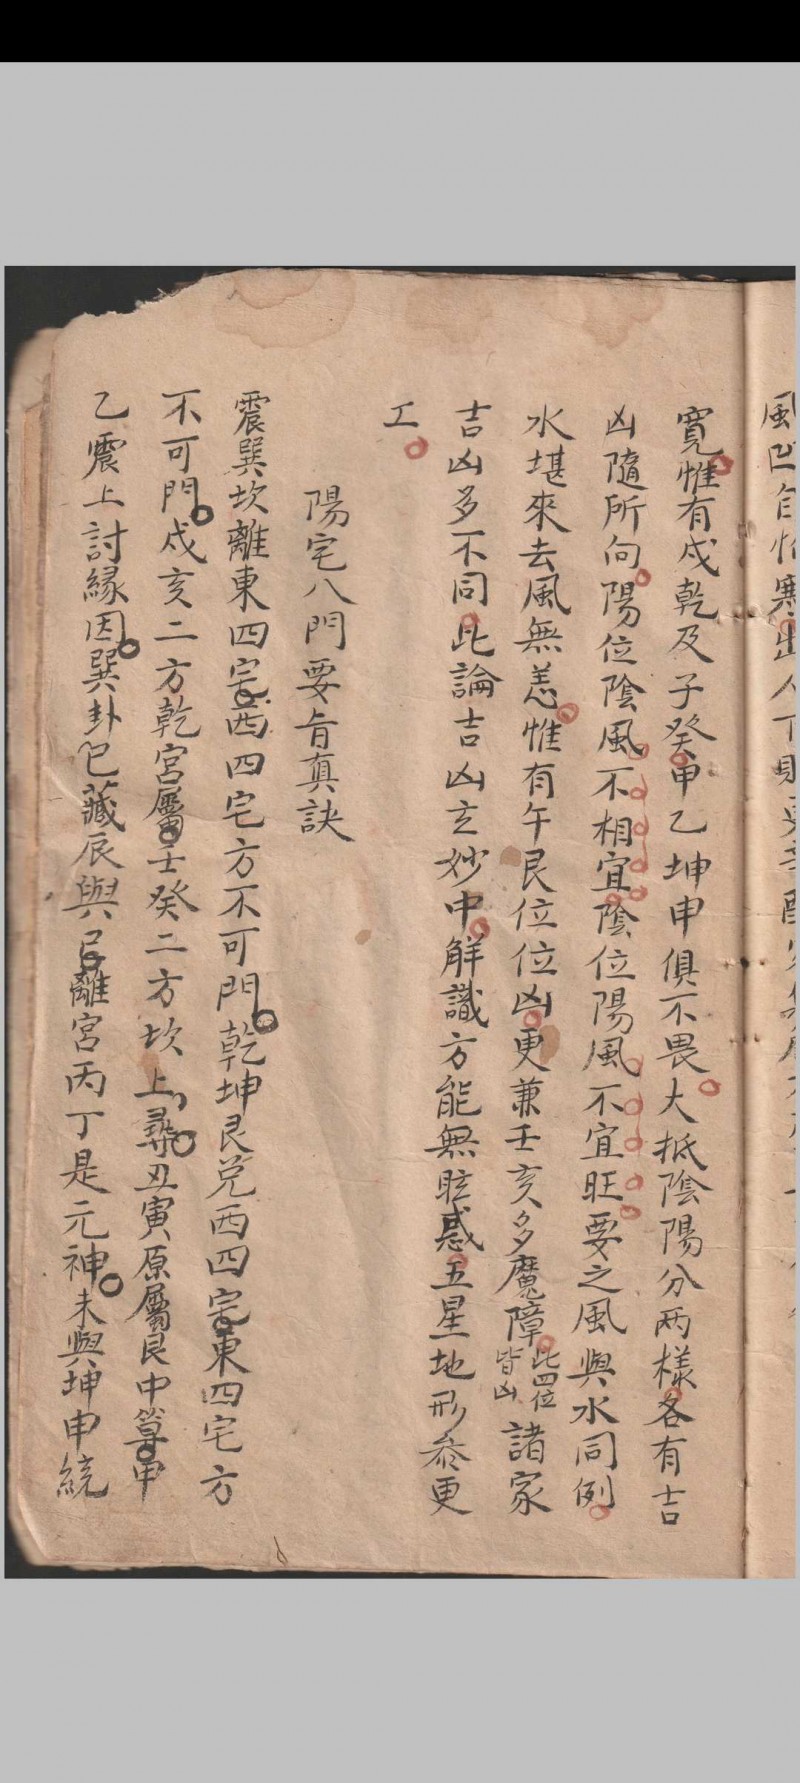 風凹自
寬惟有戌乾及子癸甲乙坤申俱不畏大抵陰陽分兩樣各有吉
凶隨所向陽位陰風不相宜陰位陽風不宜旺要之風與水同例
水堪來去風無恙惟有午艮位位凶更兼壬亥多魔障此四位皆凶諸家
吉凶多不同此論吉凶玄妙中解識方能無眩惑五星地形叅更
工
陽宅八門要旨真訣
震巽坎離東四宅西四宅方不可門乾坤艮兌西四宅東四宅方
不可門戌亥二方乾宮屬壬癸二方坎上尋丑寅原屬艮中算甲
乙震上討緣因巽卦包藏辰與巳離宮丙丁是元神未與坤申統